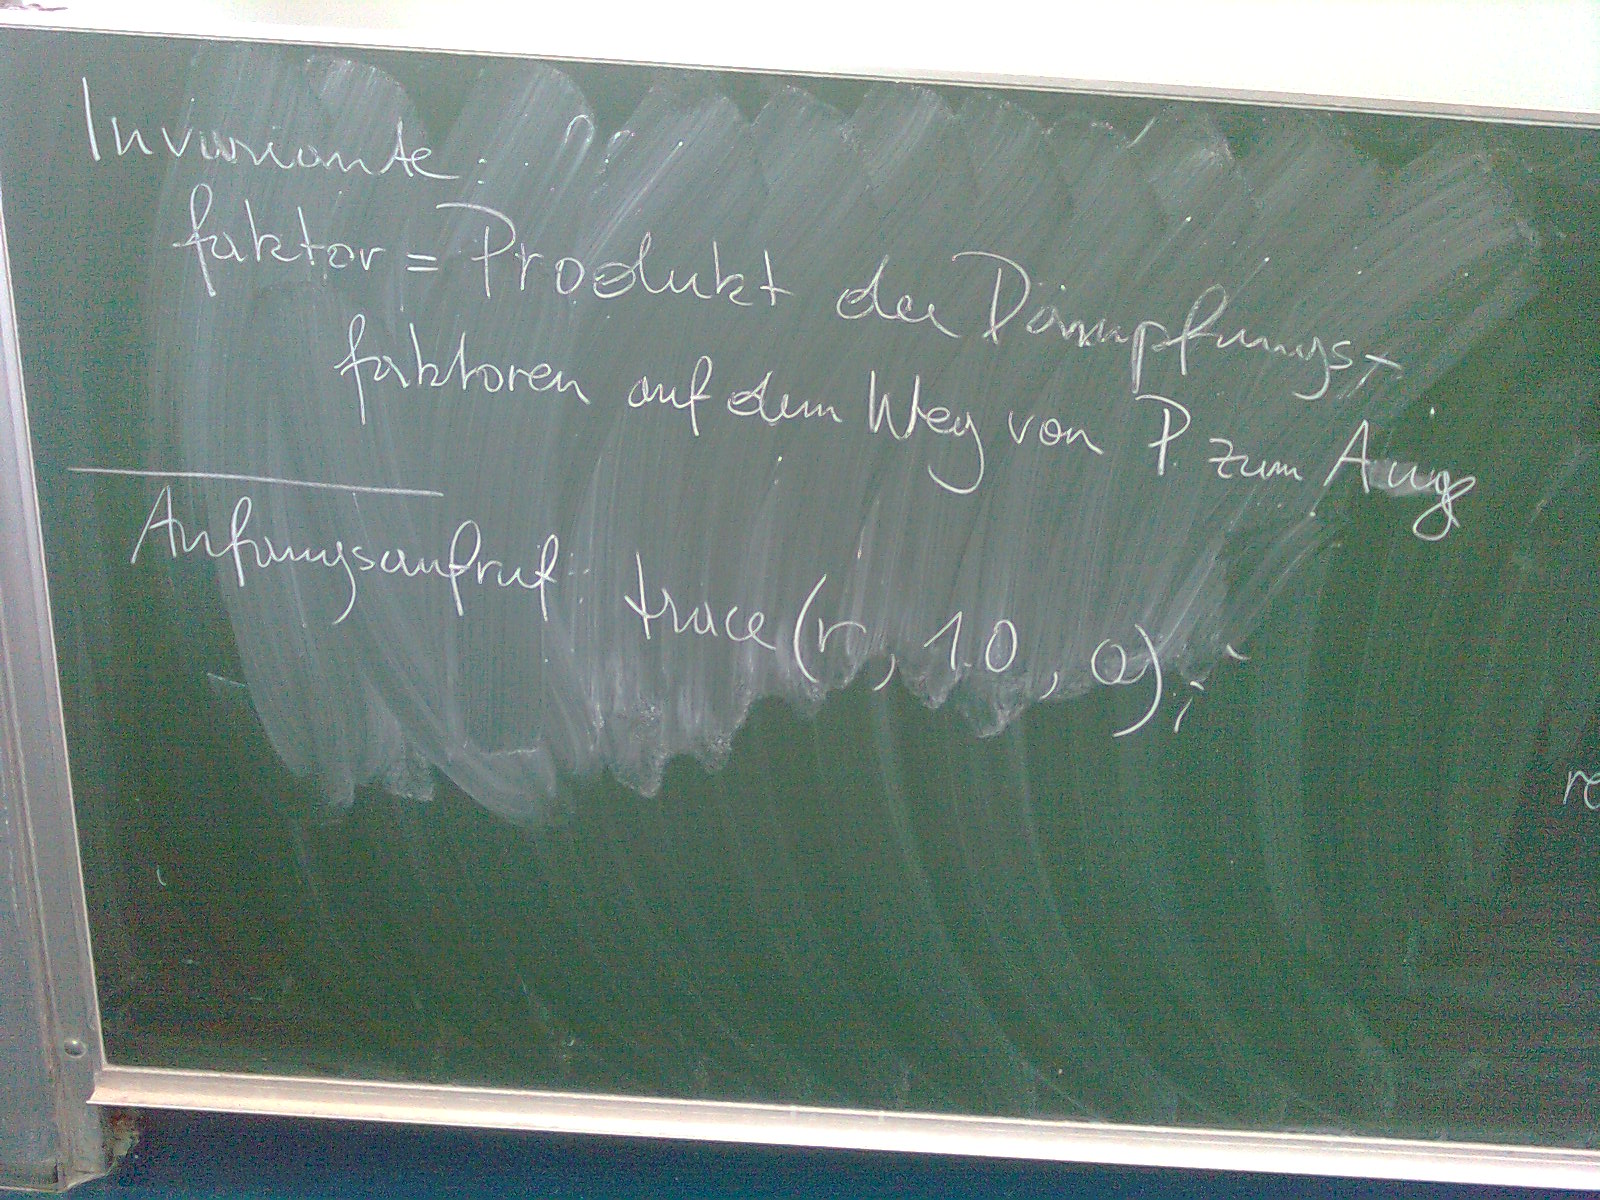 Invariante:
faktor = Produkt der Dämpfungs-
faktoren auf dem Weg von P zum Auge
Anfangsaufruf: trace(r, 1.0, 0);
re